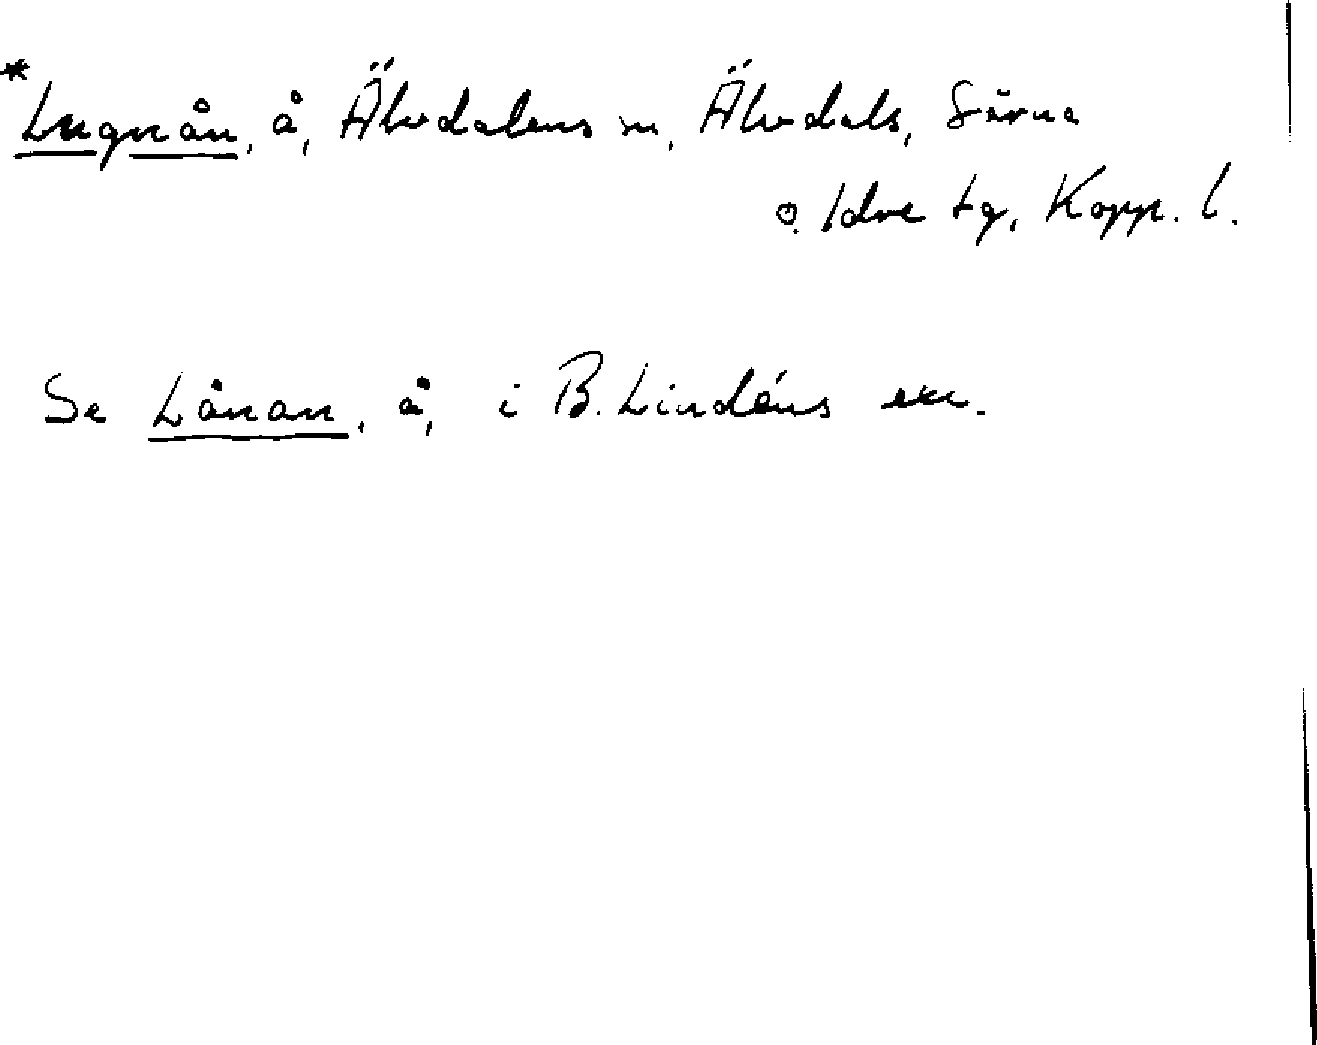 *Lugnån, å, Älvdalens sn, Älvdals, Särna
o. Idre tg, Kopp. l.
Se Lånan, å, i B. Lindéns exc.